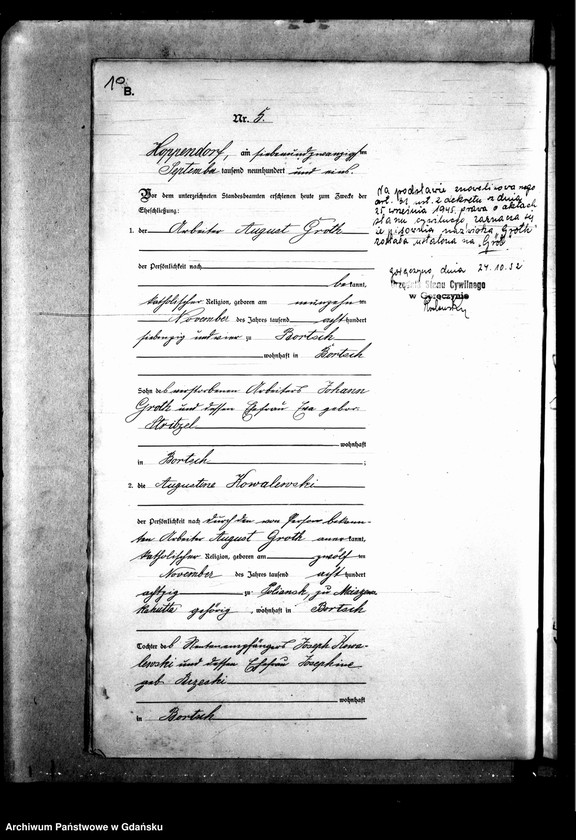 10 B.
Nr. 5.
Hoppendorf, am siebenundzwanzigsten
September tausend neunhundert und eins.
Vor dem unterzeichneten Standesbeamten erschienen heute zum Zwecke der
Eheschließung:
1. der Arbeiter August Groth
der Persönlichkeit nach
bekannt,
katholischer Religion, geboren am neunzehnten
November des Jahres tausend achthundert
siebenzig und vier zu Bortsch
, wohnhaft in Bortsch
Sohn des verstorbenen Arbeiters Johann
Groth und dessen Ehefrau Eva gebor.
Stritzel
wohnhaft
in Bortsch ;
2. die Augustine Kowalewski
der Persönlichkeit nach durch den von Person bekann-
ten Arbeiter August Groth anerkannt,
katholischer Religion, geboren am zwölften
November des Jahres tausend achthundert
achtzig zu
gehörig, wohnhaft in Bortsch
Tochter des Rentenempfängers Joseph Kowa-
lewski und dessen Ehefrau Josephine
geb.
wohnhaft
in Bortsch
Na podstawie znowelizowanego
art. 31 ust. 2 dekretu z dnia
25 września 1945 prawa o aktach
stanu cywilnego, zaznacza się
iż pisownia nazwiska "Groth"
została ustalona na "Grot"
dnia 24.10.52
Urzędnik Stanu Cywilnego
w Goręczynie
Archiwum Państwowe w Gdańsku